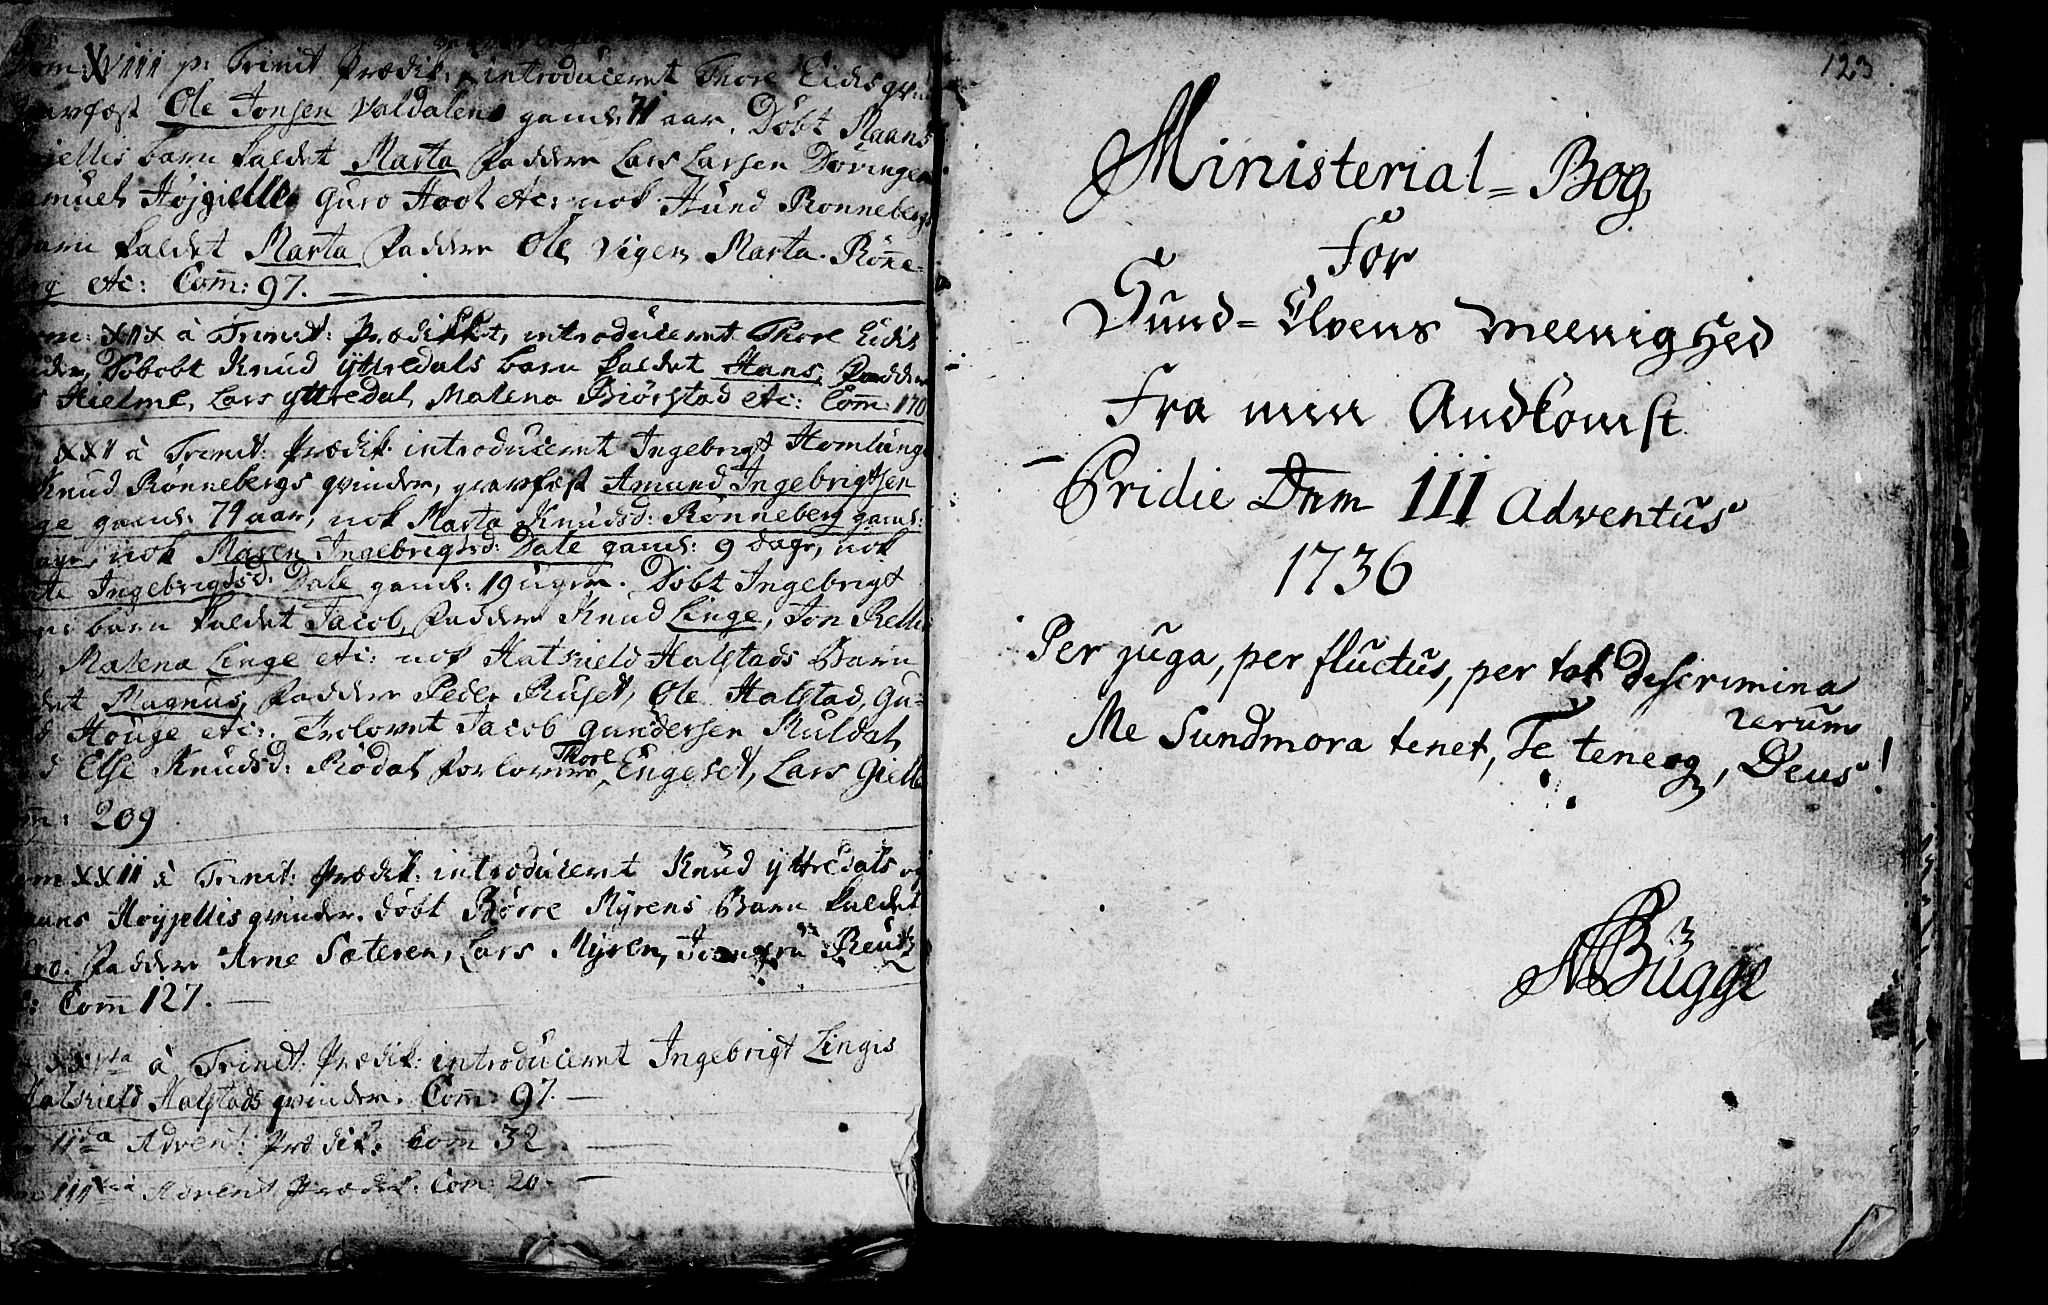 Dom: XViii p: Trinit Prædik: introduceret Thore Eidis qvin
gravfæst Ole Jonsen Valdalens gaml: 71 aar. Döbt Maans
barn kaldet Marta Faddere Lars Larsen Dövingen
Samuel Höjgielle Guro Hool etc: nok Knud Rönnebergs
barn kaldet Marta Faddere Ole Vigen Marta Röñe-
berg etc: Com̃: 97. —
Dom: XIX à Trinit: Prædikket, introduceret Thore Eidis
Döbt Knud Yttredals barn kaldet Hans, Faddere
Hielme, Lars yttredal, Malena Biörstad etc: Com̃: 170
XXI à Trinit: Prædik: introduceret Ingebrigt Homlungs
Knud Rönnebergs qvinder, gravfæst Amund Ingebrigtsen
Linge gaml: 74 aar, nok Marta Knudsd: Rönneberg gaml:
dage, nok Maren Ingebrigtsd: Dale gaml: 9 dage, nok
Ingebrigtsd: Dale gaml: 19 uger. Döbt Ingebrigt
barn kaldet Jacob, Faddere Knud Linge, Jon Relling
Malena Linge etc: nok Hatskield Halstads Barn
kaldet Magnus, Faddere Peder Ruset, Ole Halstad, Gu-
Houge etc: Trolovet Jacob Gundersen Muldal
Else Knudsd: Rödal forlovere Thore Engeset, Lars Gielle
Com̃: 209
Dom XXII à Trinit: Prædik: introduceret Knud yttredals og
Maans Höyjellis qvinder. döbt Börre Myrens Barn kaldet
Faddere Arne Sæteren, Lars Myren,
Com̃ 127. —
à Trinit: Prædik: introduceret Ingebrigt Lingis
Hatskield Halstads qvinder. Com̃: 97. —
IIda Advent: Prædik: Com̃ 32. —
III Advent Prædik: Com: 20. —
123
Ministerial = Bog
For
Sund = Elvens Meenighed
Fra min Andkomst
Pridie Dnm III Adventus
1736
Per juga, per fluctus, per tot discrimina
rerum
Me Sundmora tenet, Te teneoq, Deus!
Bugge